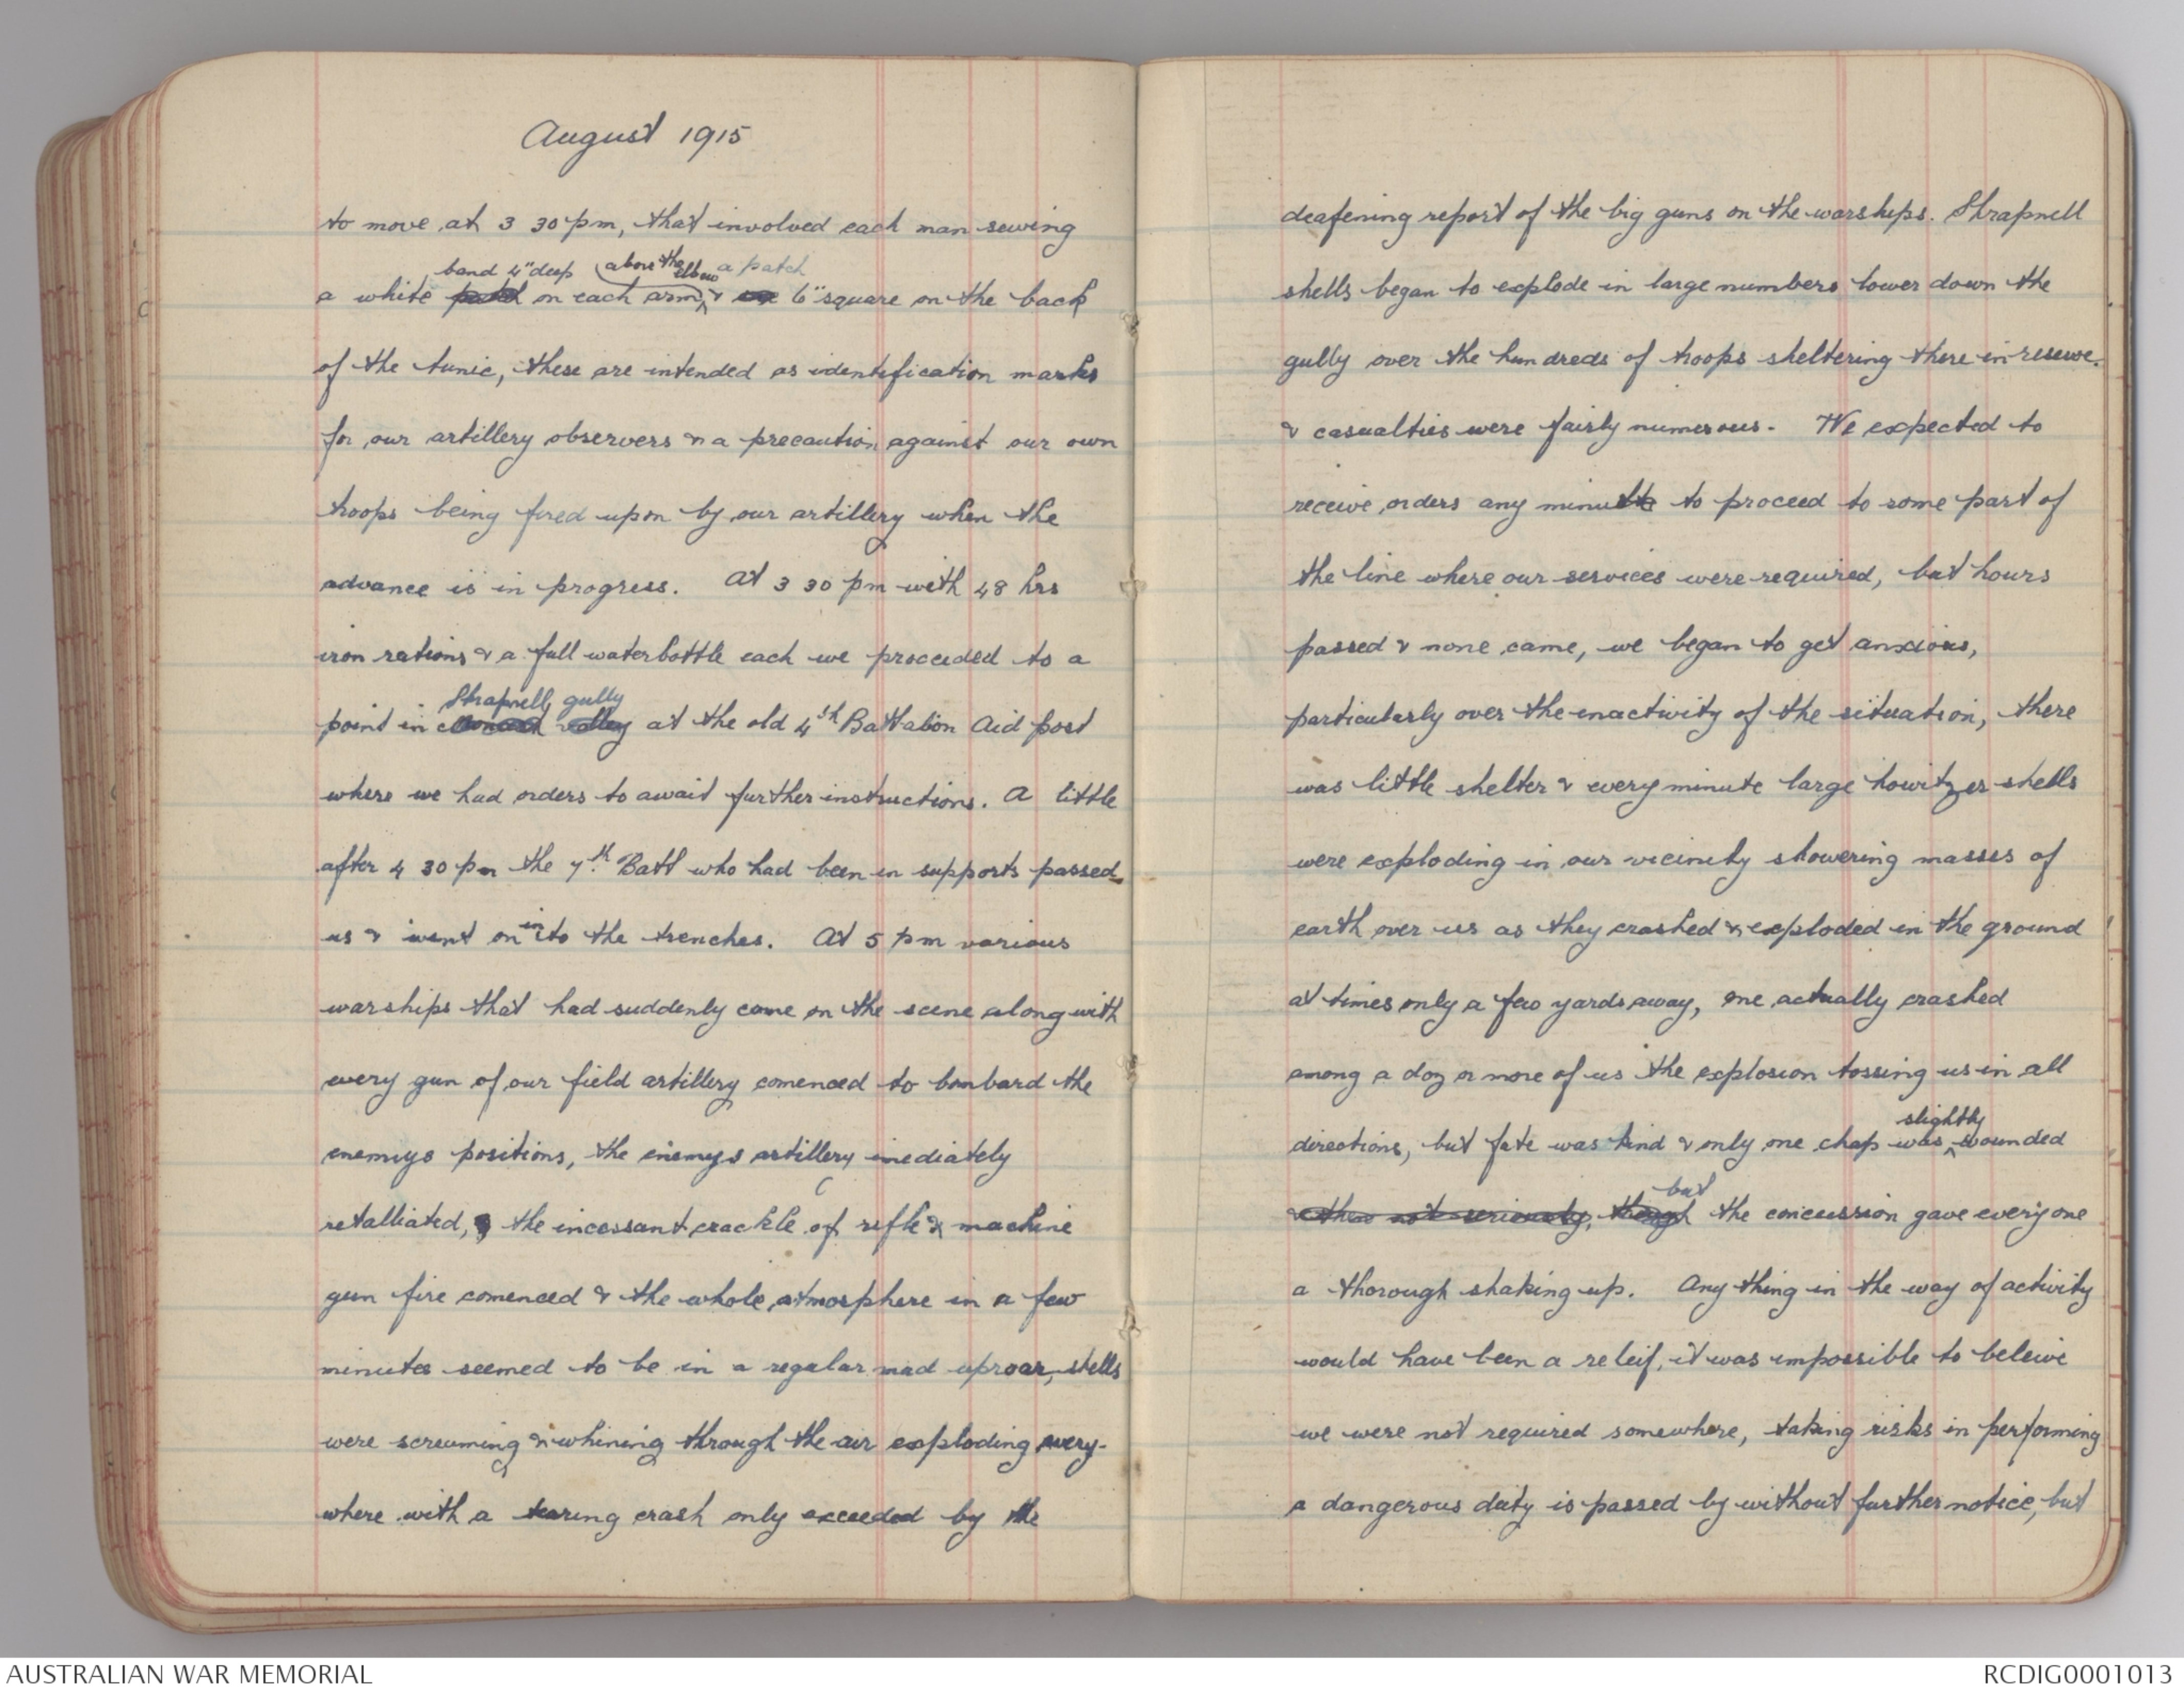 August 1915
to move at 3 30 pm, that involved each man sewing
band 4" deep (above the elbow a patch
a white patch on each arm, & one 6" square on the back
of the tunic, these are intended as identification marks
for our artillery observers & a precaution against our own
troops being fired upon by our artillery when the
advance is in progress. At 3 30 pm with 48 hrs
iron rations & a full waterbottle each we proceeded to a
Shrapnell gully
point in valley at the old 4th Battalion Aid post
where we had orders to await further instructions. A little
after 4 30 pm the 7th Batt who had been in supports passed
us & went on into the trenches. At 5 pm various
warships that had suddenly come on the scene along with
every gun of our field artillery comenced to bombard the
enemys positions, the enemys artillery imediately
retalliated, the incessant crackle of rifle & machine
gun fire comenced & the whole atmosphere in a few
minutes seemed to be in a regular mad uproar, shells
were screaming & whining through the air exploding every-
where with a tearing crash only exceeded by the
deafening report of the big guns on the warships. Shrapnell
shells began to explode in large numbers lower down the
gully over the hundreds of troops sheltering there in reserve.
& casualties were fairly numerous. We expected to
receive orders any minute to proceed to some part of
the line where our services were required, but hours
passed & none came, we began to get anxious,
particularly over the inactivity of the situation, there
was little shelter & every minute large howitzer shells
were exploding in our vicinity showering masses of
earth over us as they crashed & exploded in the ground
at times only a few yards away, one actually crashed
among a doz or more of us the explosion tossing us in all
slightly
directions, but fate was kind & only one chap was wounded
but
not seriously, though the concussion gave everyone
a thorough shaking up. Any thing in the way of activity
would have been a releif, it was impossible to beleive
we were not required somewhere, taking risks in performing
a dangerous duty is passed by without further notice, but
AUSTRALIAN WAR MEMORIAL
RCDIG0001013